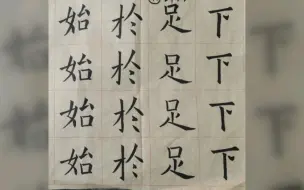 始於足下
始於足下
始於足下
始於足下